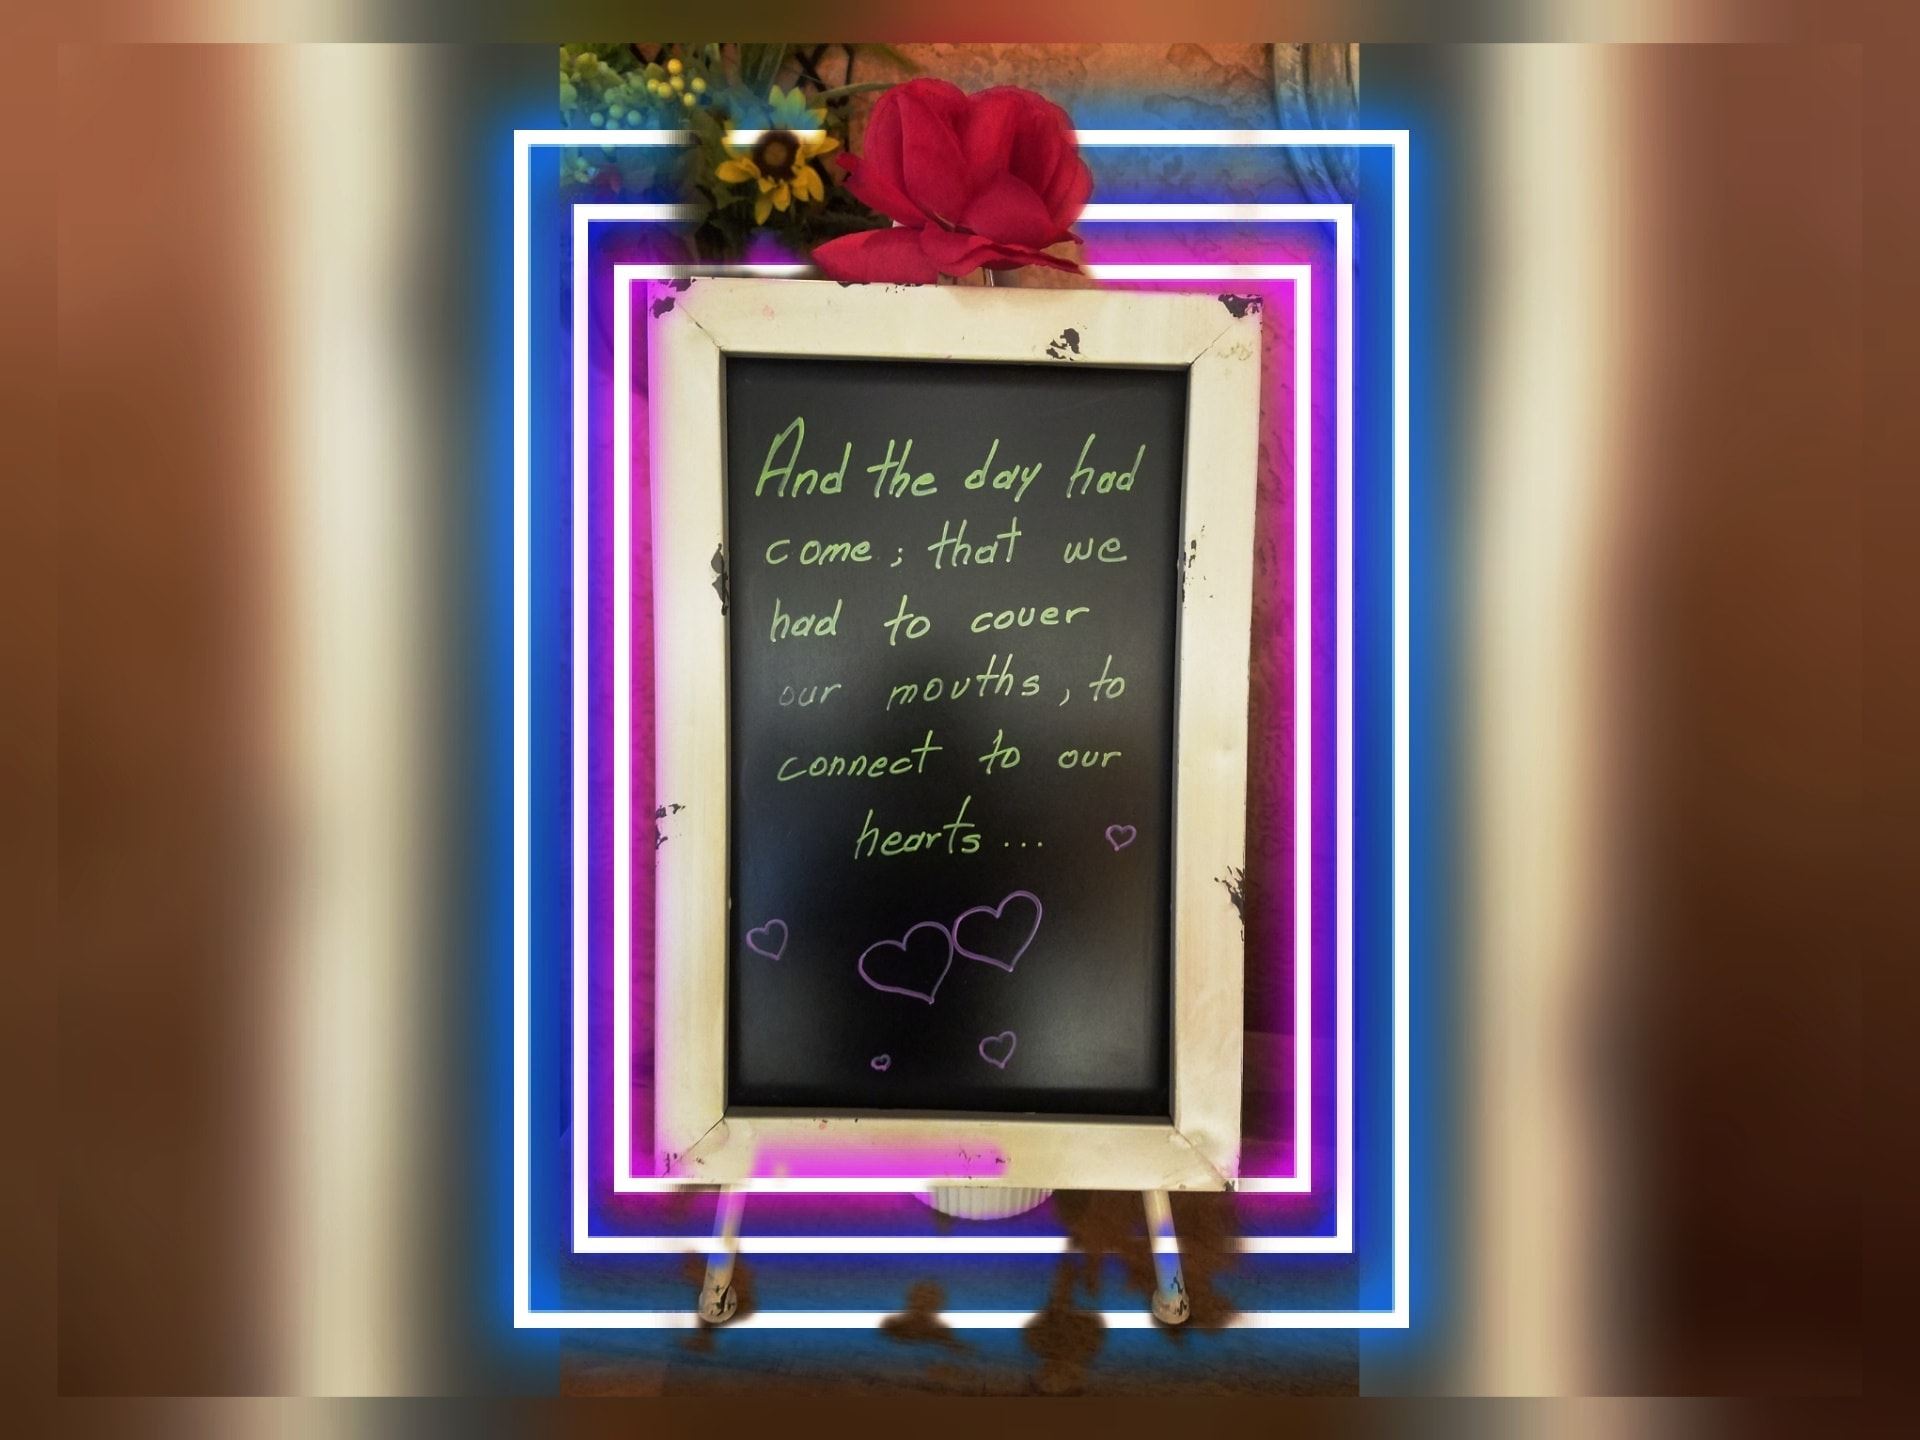 And the day had
come; that we
had to cover
our mouths, to
connect to our
hearts...